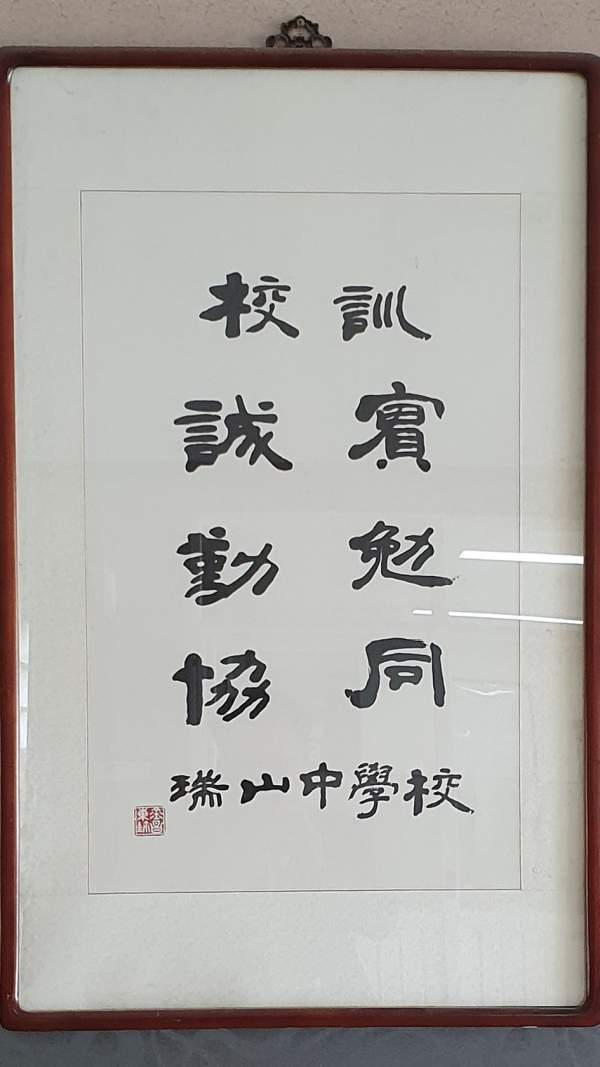 校訓
誠實
勤勉
協同
瑞山中學校